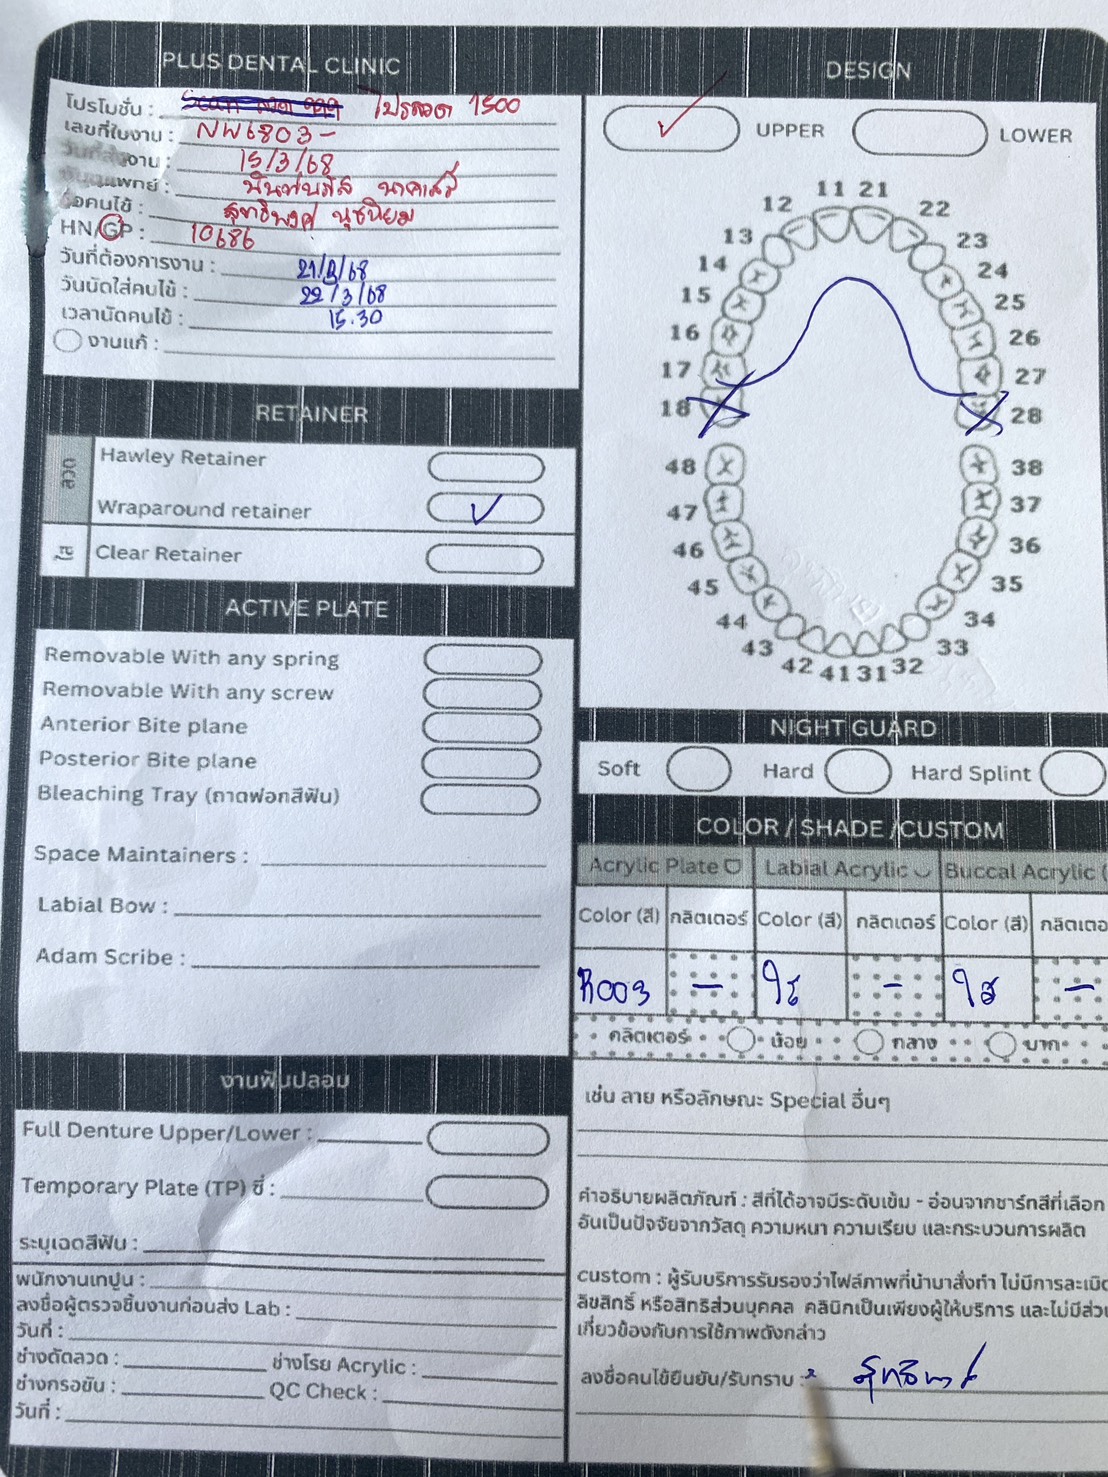 PLUS DENTAL CLINIC
โปรโมชั่น : โปรลวด 1500
เลขที่ใบงาน : NW6803-
วันที่ส่งงาน : 15/3/68
ชื่อคนไข้ : สุทธิพงศ์ นุชนิยม
HN/GP : 10686
วันที่ต้องการงาน : 21/3/68
วันนัดใส่คนไข้ : 22/3/68
เวลานัดคนไข้ : 15.30
งานแก้ :
RETAINER
ลวด
Hawley Retainer
Wraparound retainer ✓
ใส
Clear Retainer
ACTIVE PLATE
Removable With any spring
Removable With any screw
Anterior Bite plane
Posterior Bite plane
Bleaching Tray (ถาดฟอกสีฟัน)
Space Maintainers :
Labial Bow :
Adam Scribe :
งานฟันปลอม
Full Denture Upper/Lower :
Temporary Plate (TP) ซี่ :
ระบุเฉดสีฟัน :
พนักงานเทปูน :
ลงชื่อผู้ตรวจชิ้นงานก่อนส่ง Lab :
วันที่ :
ช่างดัดลวด : ช่างโรย Acrylic :
ช่างกรอขัน : QC Check :
วันที่ :
DESIGN
✓ UPPER LOWER
11 21
12 22
13 23
14 24
15 25
16 26
17 27
18 28
48 38
47 37
46 36
45 35
44 34
43 33
42 41 31 32
NIGHT GUARD
Soft Hard Hard Splint
COLOR / SHADE /CUSTOM
Acrylic Plate Labial Acrylic Buccal Acrylic
Color (สี) กลิตเตอร์ Color (สี) กลิตเตอร์ Color (สี) กลิตเตอ
R003 - ใส - ใส -
กลิตเตอร์ น้อย กลาง มาก
เช่น ลาย หรือลักษณะ Special อื่นๆ
คำอธิบายผลิตภัณฑ์ : สีที่ได้อาจมีระดับเข้ม - อ่อนจากชาร์ทสีที่เลือก
อันเป็นปัจจัยจากวัสดุ ความหนา ความเรียบ และกระบวนการผลิต
custom : ผู้รับบริการรับรองว่าไฟล์ภาพที่นำมาสั่งทำ ไม่มีการละเมิด
ลิขสิทธิ์ หรือสิทธิส่วนบุคคล คลินิกเป็นเพียงผู้ให้บริการ และไม่มีส่วน
เกี่ยวข้องกับการใช้ภาพดังกล่าว
ลงชื่อคนไข้ยืนยัน/รับทราบ :